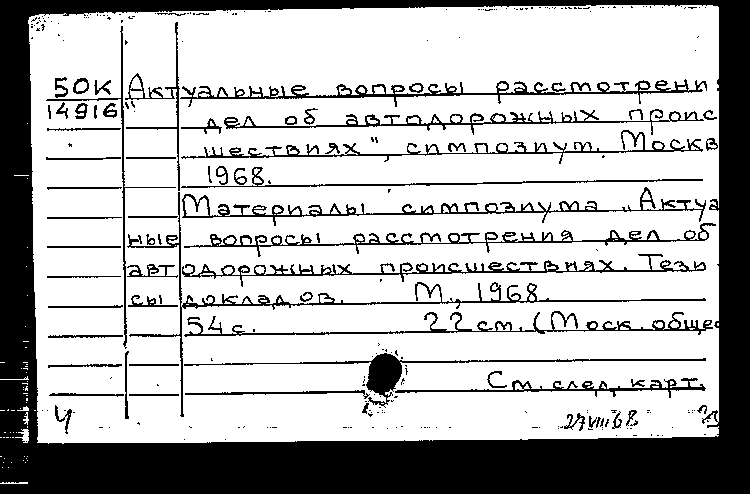 50К Актуальные вопросы рассмотрени
14916 " дел об автодорожных проис
шествиях", симпозиум. Москв
1968.
Материалы симпозиума „Актуа
ные вопросы рассмотрения дел об
автодорожных происшествиях. Тези
сы докладов. М., 1968.
54 с. 22 см. (Моск. общес
См. след. карт.
Ч 27 VIII 68